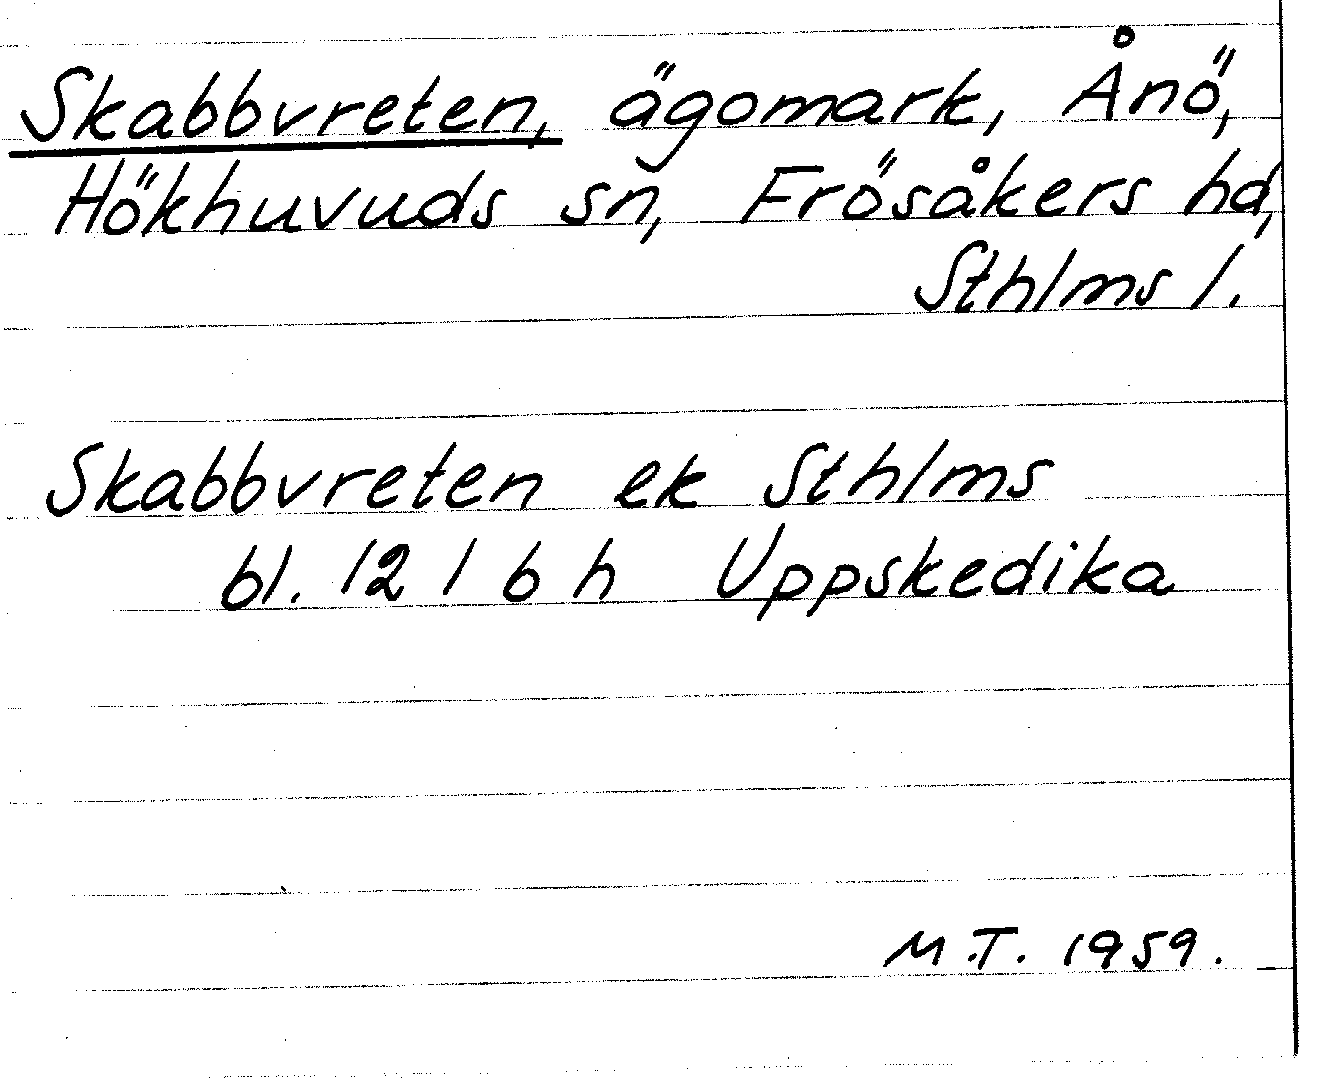 Skabbvreten, ägomark, Ånö,
Hökhuvuds sn, Frösåkers hd,
Sthlms l.
Skabbvreten ek Sthlms
bl. 12 1 b h Uppskedika
M.T. 1959.